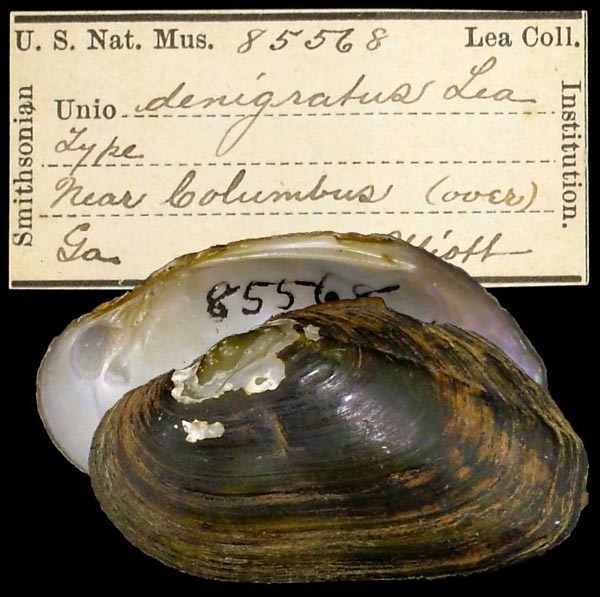 U. S. Nat. Mus. 85568 Lea Coll.
Smithsonian
Institution.
Unio denigratus Lea
Type
Near Columbus (over)
Ga.
85568